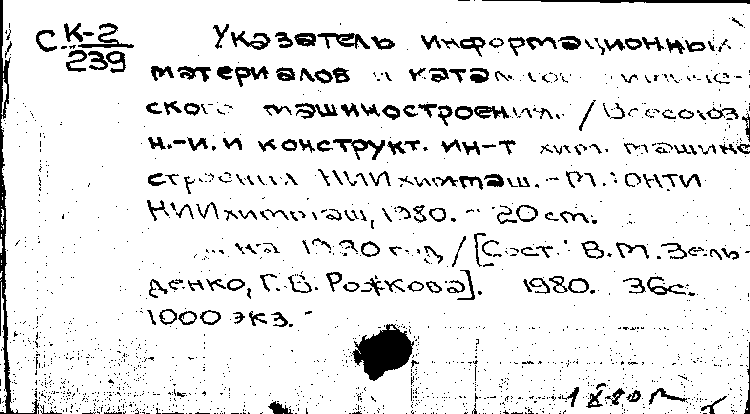 С К-2
239
Указатель информационных
материалов и каталогов химиче-
ского машиностроения. / Всесоюз.
н.-и. и конструкт. ин-т хим. машино
строения НИИхиммаш. - М.: ОНТИ
НИИхиммаш, 1980. - 20 см.
... на 1980 год / [Сост.: В.М. Зель-
денко, Г.В. Рожкова]. 1980. 36с.
1000 экз. -